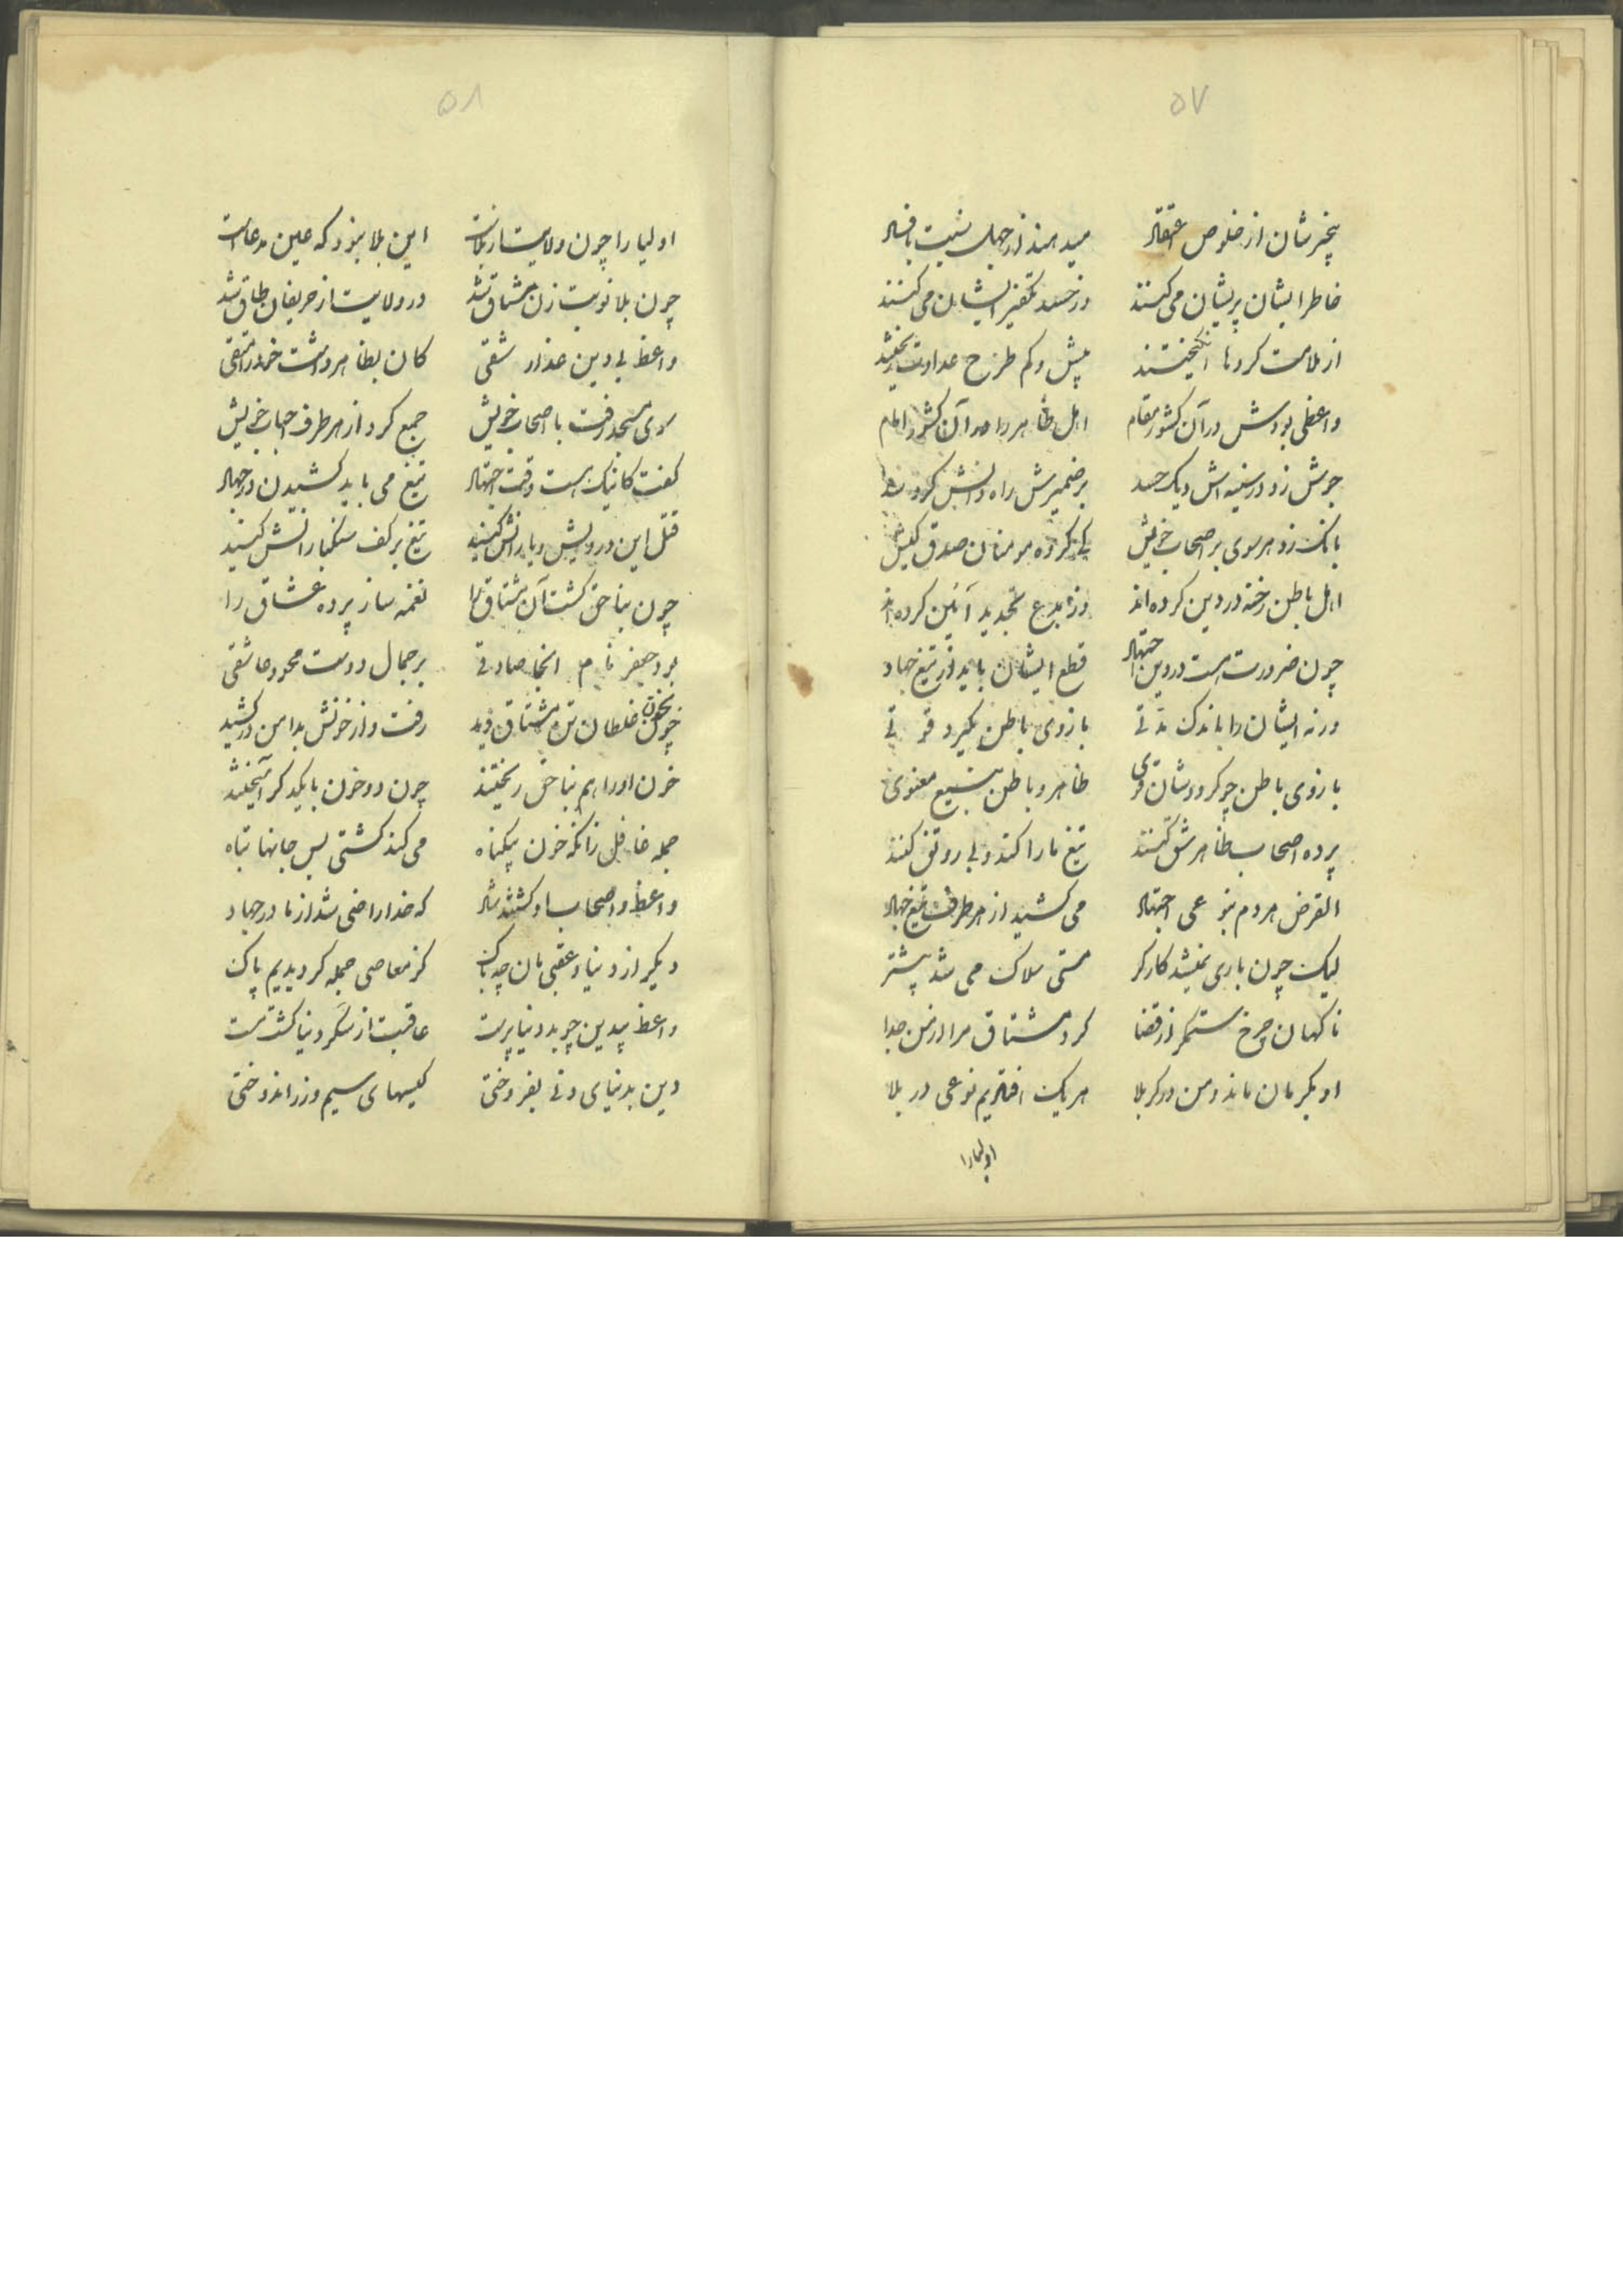 ۵۷
بیخبرشان از خلوص اعتقاد میدهند از جهل نسبت با فساد
خاطر ایشان پریشان می کنند وز حسد تکفیر ایشان می کنند
از ملامت گردها انگیختند بیش و کم طرح عداوت ریختند
واعظی بودش در آن کشور مقام اهل ظاهر را در آن کشور امام
جوش زد در سینه اش دیک حسد بر ضمیرش راه دانش کرد سد
بانک زد هر سوی بر اصحاب خویش کی گروه مومنان صدق کیش
اهل باطن رخنه در دین کرده اند وز بدع تجدید آئین کرده اند
چون ضرورت است در دین اجتهاد قطع ایشان باید از تیغ جهاد
ورنه ایشان را باندک مدتی بازوی باطن بگیرد قوتی
بازوی باطن چو کردشان قوی ظاهر و باطن معنوی
پرده اصحاب ظاهر شق کنند تیغ ما را کند و بی رونق کنند
الغرض هر دم بنوعی اجتهاد می کشید از هر طرف تیغ جهاد
لیک چون باری نمیشد کارگر مستی ملاک می شد پیشتر
ناگهان چرخ ستمگر از قضا کرد مشتاق مرا از من جدا
او بکرمان ماند و من در کربلا هر یک افتادیم نوعی در بلا
اولیا را
۵۸
اولیا را چون ولایت از بلاست این بلا نبود که عین مدعاست
چون بلا نوبت زن مشتاق شد در ولایت از حریفان طاق شد
واعظ بی دین غدار شقی کان بظاهر داشت خود را متقی
سوی مسجد رفت با اصحاب خویش جمع کرد از هر طرف احباب خویش
گفت کاینک هست وقت اجتهاد تیغ می باید کشیدن در جهاد
قتل این درویش و یارانش کنید تیغ بر کف سنگبارانش کنید
چون بناحق کشت آن مشتاق را نغمه ساز پرده عشاق را
بود جعفر نام انجا صادقی بر جمال دوست محو و عاشقی
چون بخون غلطان تن مشتاق دید رفت و از خونش بدامن در کشید
خون او را هم بناحق ریختند چون دو خون با یکدگر آمیختند
جمله غافل زانکه خون بیگناه می کند کشتی بس جانها تباه
واعظ و اصحاب او گشتند شاد که خدا راضی شد از ما در جهاد
دیگر از دنیا و عقبی مان چه باک کز معاصی جمله گردیدیم پاک
واعظ بیدین چو بد دنیا پرست عاقبت از سکر دنیا گشت مست
دین بدنیای دنی بفروختی کیسهای سیم و زر اندوختی